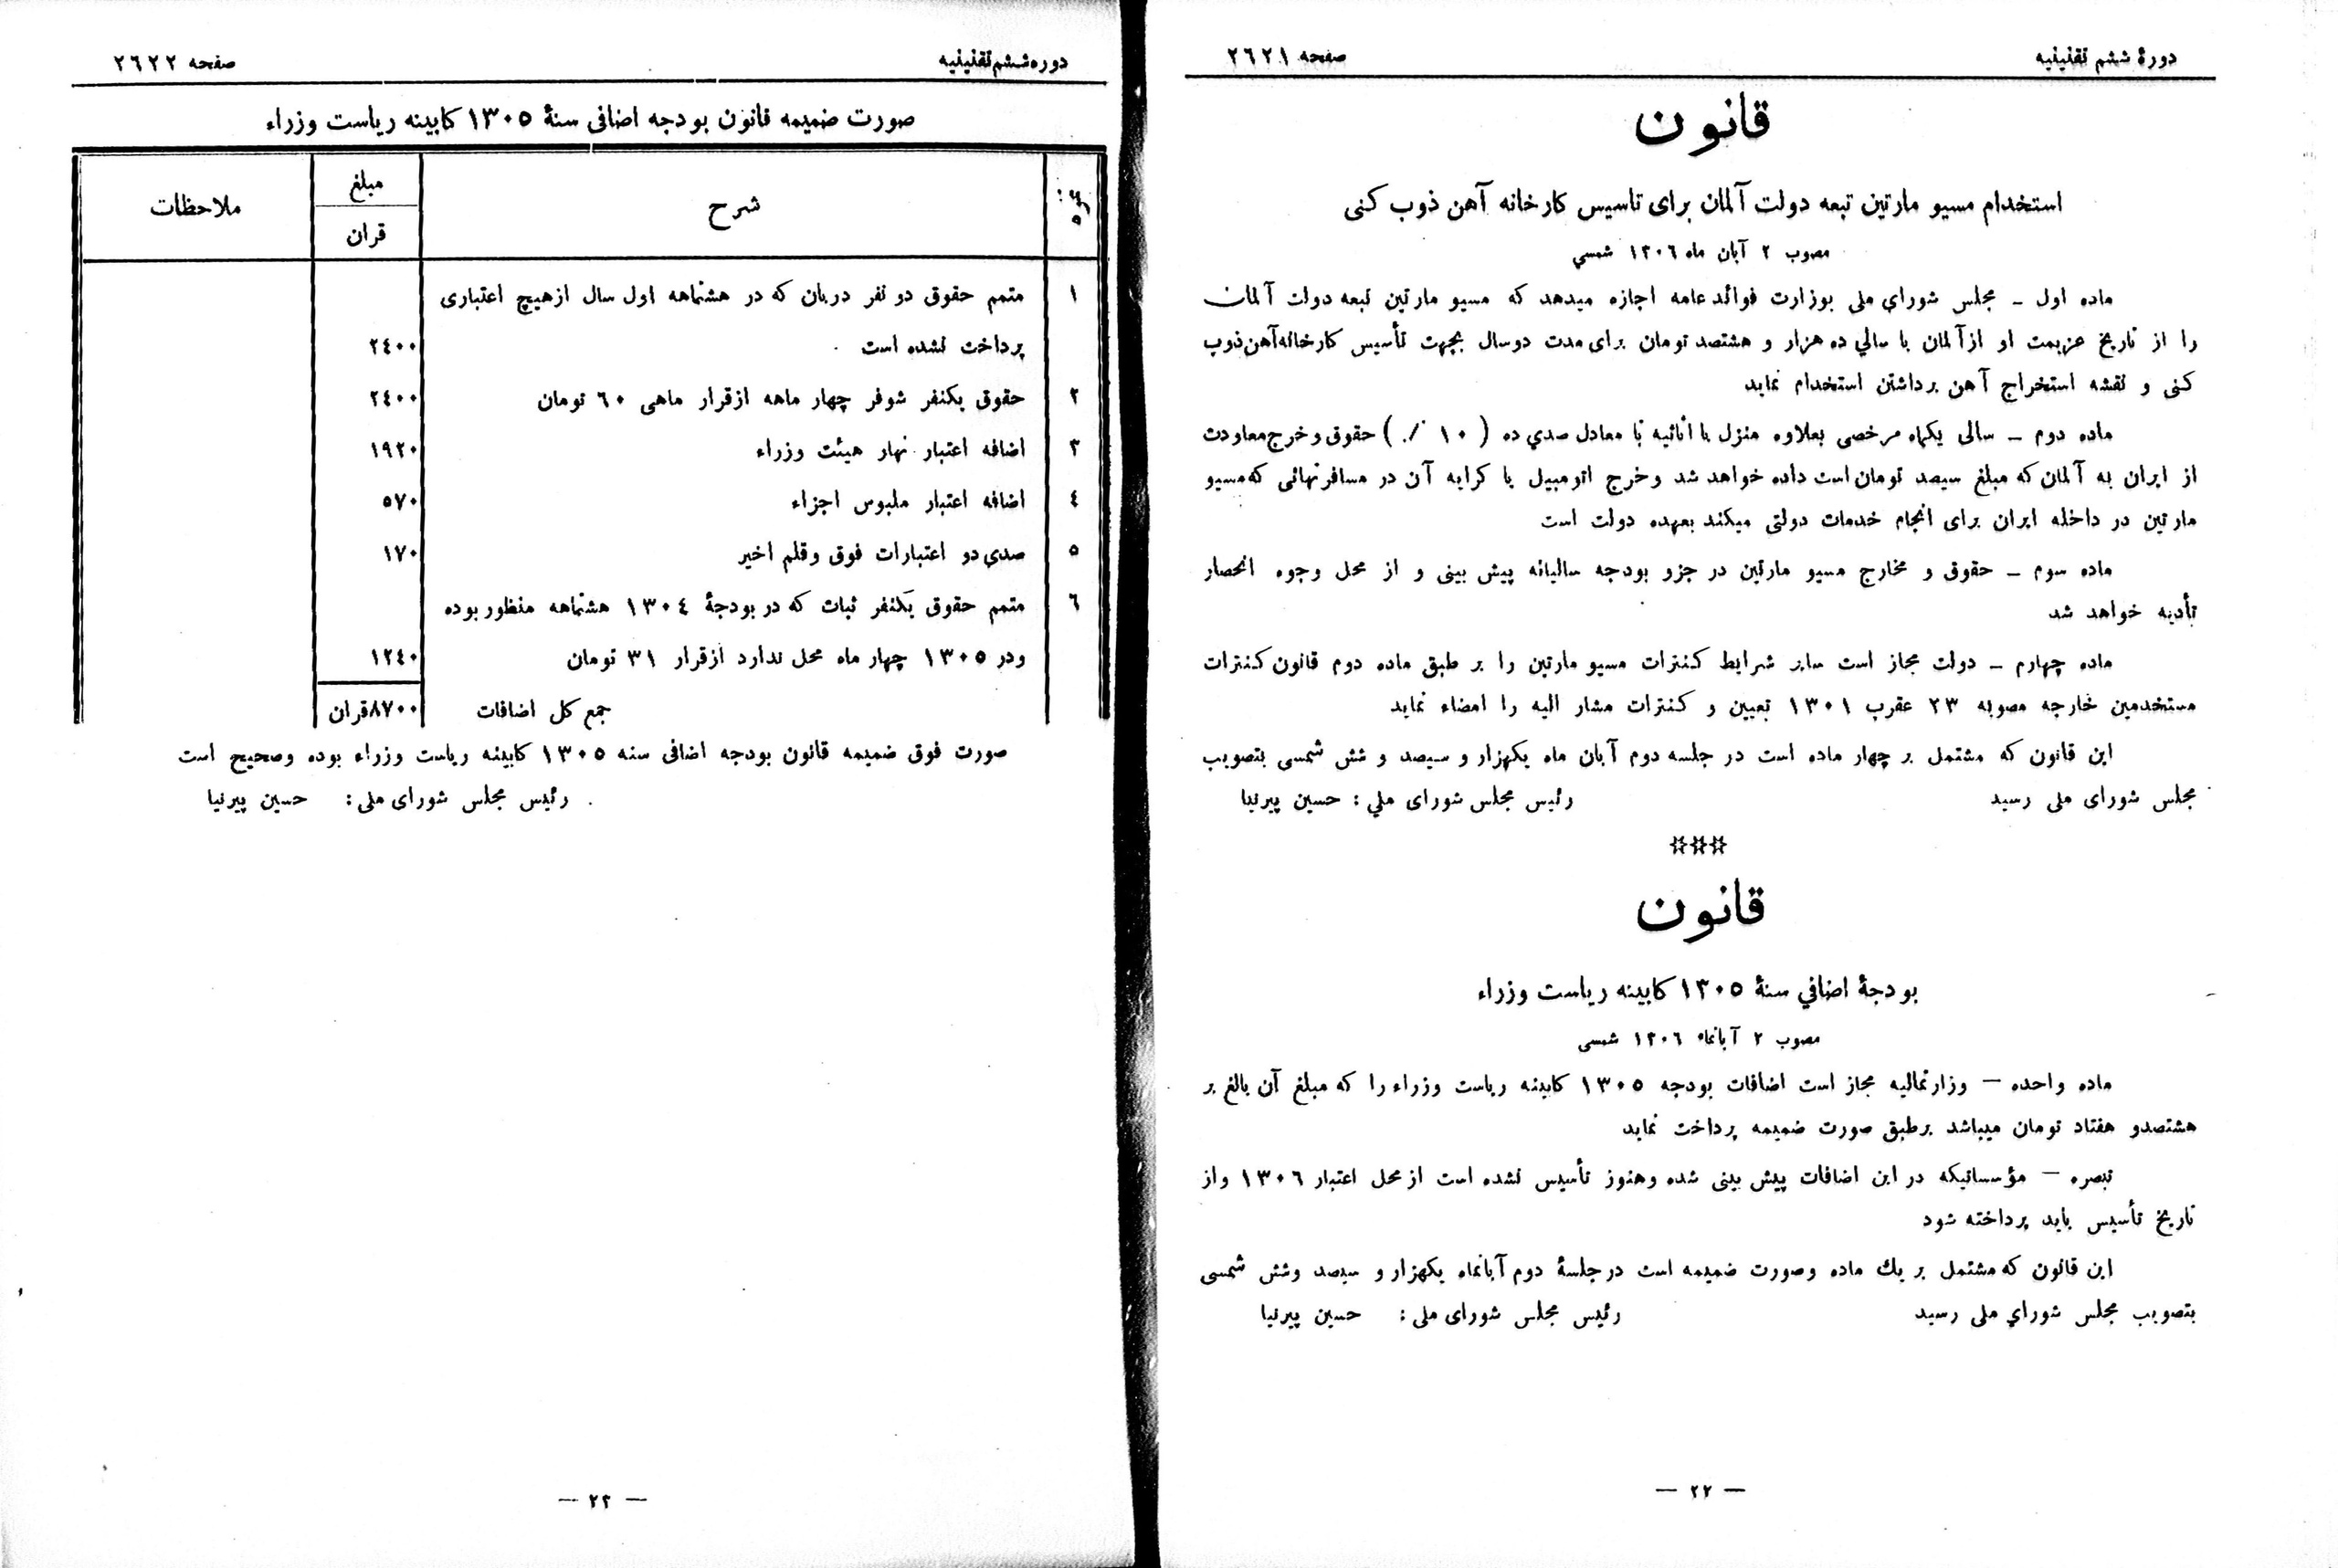 دورهٔ ششم تقنینیه
صفحه ٢٦٢١
قانون
استخدام مسیو مارتین تبعه دولت آلمان برای تاسیس کارخانه آهن ذوب کنی
مصوب ٢ آبان ماه ١٣٠٦ شمسي
ماده اول ـ مجلس شورای ملی بوزارت فوائد عامه اجازه میدهد که مسیو مارتین تبعه دولت آلمان
را از تاریخ عزیمت او ازآلمان با سالي ده هزار و هشتصد تومان برای مدت دوسال بجهت تأسیس کارخانه‌آهن‌ذوب
کنی و نقشه استخراج آهن برداشتن استخدام نماید
ماده دوم ـ سالی یکماه مرخصی بعلاوه منزل با اثاثیه تا معادل صدي ده ( ١٠ ٪ ) حقوق و خرج معاودت
از ایران به آلمان که مبلغ سیصد تومان است داده خواهد شد و خرج اتومبیل یا کرایه آن در مسافرتهائی که مسیو
مارتین در داخله ایران برای انجام خدمات دولتی میکند بعهده دولت است
ماده سوم ـ حقوق و مخارج مسیو مارتین در جزو بودجه سالیانه پیش بینی و از محل وجوه انحصار
تأدیه خواهد شد
ماده چهارم ـ دولت مجاز است سایر شرایط کنترات مسیو مارتین را بر طبق ماده دوم قانون کنترات
مستخدمین خارجه مصوبه ٢٣ عقرب ١٣٠١ تعیین و کنترات مشار الیه را امضاء نماید
این قانون که مشتمل بر چهار ماده است در جلسه دوم آبان ماه یکهزار و سیصد و شش شمسی بتصویب
مجلس شورای ملی رسید رئیس مجلس شورای ملي : حسین پیرنیا
***
قانون
بودجهٔ اضافي سنهٔ ١٣٠٥ کابینه ریاست وزراء
مصوب ٢ آبانماه ١٣٠٦ شمسی
ماده واحده — وزارتمالیه مجاز است اضافات بودجه ١٣٠٥ کابینه ریاست وزراء را که مبلغ آن بالغ بر
هشتصدو هفتاد تومان میباشد برطبق صورت ضمیمه پرداخت نماید
تبصره — مؤسساتیکه در این اضافات پیش بینی شده وهنوز تأسیس نشده است از محل اعتبار ١٣٠٦ واز
تاریخ تأسیس باید پرداخته شود
این قانون که مشتمل بر یك ماده وصورت ضمیمه است درجلسهٔ دوم آبانماه یکهزار و سیصد وشش شمسی
بتصویب مجلس شوراي ملی رسید رئیس مجلس شورای ملی : حسین پیرنیا
— ٢٢ —
دوره ششم تقنینیه
صفحه ٢٦٢٢
صورت ضمیمه قانون بودجه اضافی سنهٔ ١٣٠٥ کابینه ریاست وزراء
نمره شرح مبلغ ملاحظات
قران
١ متمم حقوق دو نفر دربان که در هشتماهه اول سال ازهیچ اعتباری
پرداخت نشده است ٢٤٠٠
٢ حقوق یکنفر شوفر چهار ماهه ازقرار ماهی ٦٠ تومان ٢٤٠٠
٣ اضافه اعتبار نهار هیئت وزراء ١٩٢٠
٤ اضافه اعتبار ملبوس اجزاء ٥٧٠
٥ صدی دو اعتبارات فوق وقلم اخیر ١٧٠
٦ متمم حقوق یکنفر ثبات که در بودجهٔ ١٣٠٤ هشتماهه منظور بوده
ودر ١٣٠٥ چهار ماه محل ندارد ازقرار ٣١ تومان ١٢٤٠
جمع کل اضافات ٨٧٠٠قران
صورت فوق ضمیمه قانون بودجه اضافی سنه ١٣٠٥ کابینه ریاست وزراء بوده وصحیح است
رئیس مجلس شورای ملی : حسین پیرنیا
— ٢٣ —